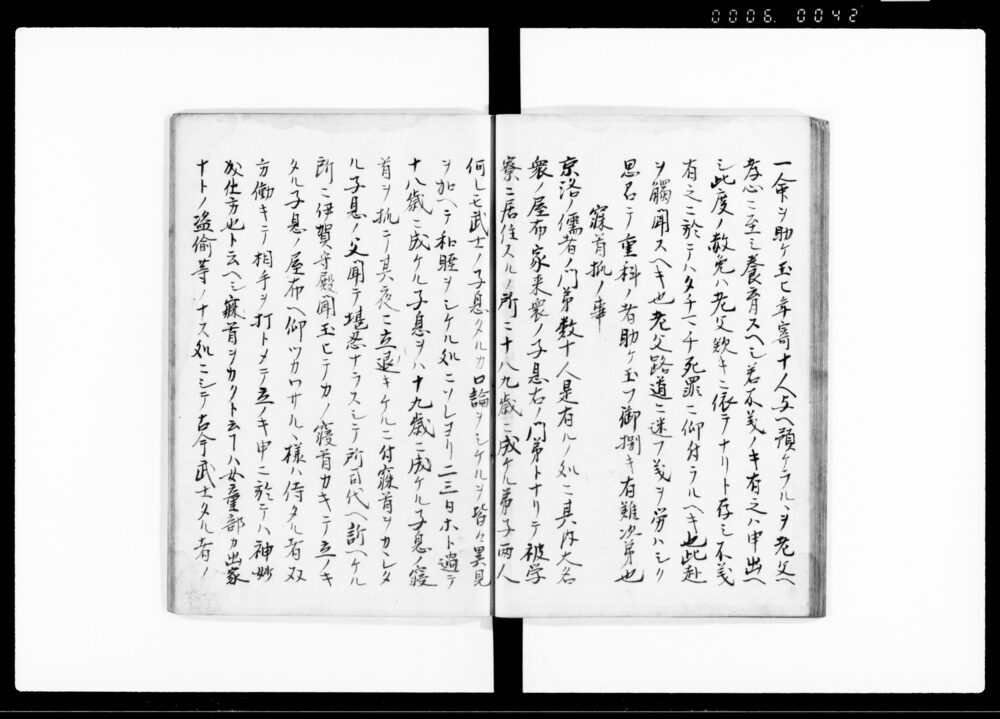 0006 0042
一命ヲ助ケ玉ヒ年寄十人与ヘ預ケラルヽヲ老父ヘ
孝心ニ至シ養育スヘシ若不義ノキ有之ハ申出ヘ
シ此度ノ赦免ハ老父歎キニ依テナリト存シ不義
有之ニ於テハタチマチ死罪ニ仰付ラルヘキ也此赴
ヲ触聞スヘキ也老父路道ニ迷フ義ヲ労ハシク
思召テ重科ノ者助ケ玉フ御捌キ有難次第也
寐首抓ノ事
京洛ノ儒者ノ門弟数十人是有ルノ処ニ其内大名
衆ノ屋布家来衆ノ子息右ノ門弟トナリテ被学
寮ニ居住スルノ所ニ十八九歳ニ成ケル弟子両人
何レモ武士ノ子息タルカ口論ヲシケルヲ皆々異見
ヲ加ヘテ和睦ヲシケル処ニソレヨリ二三日ホト過テ
十八歳ニ成ケル子息ヲハ十九歳ニ成ケル子息ノ寝
首ヲ抓ニテ其夜ニ立退キケルニ付寐首ヲカレタ
ル子息ノ父聞テ堪忍ナラスシテ所司代ヘ訴ヘケル
所ニ伊賀守殿聞玉ヒテカノ寝首カキテ立ノキ
タル子息ノ屋布ヘ仰ツカワサルヽ様ハ侍タル者双
方働キテ相手ヲ打トメテ立ノキ申ニ於テハ神妙
成仕方也ト云ヘシ寐首ヲカクト云フハ女童部カ出家
ナトノ盗偸等ノナス処ニシテ古今武士タル者ノ